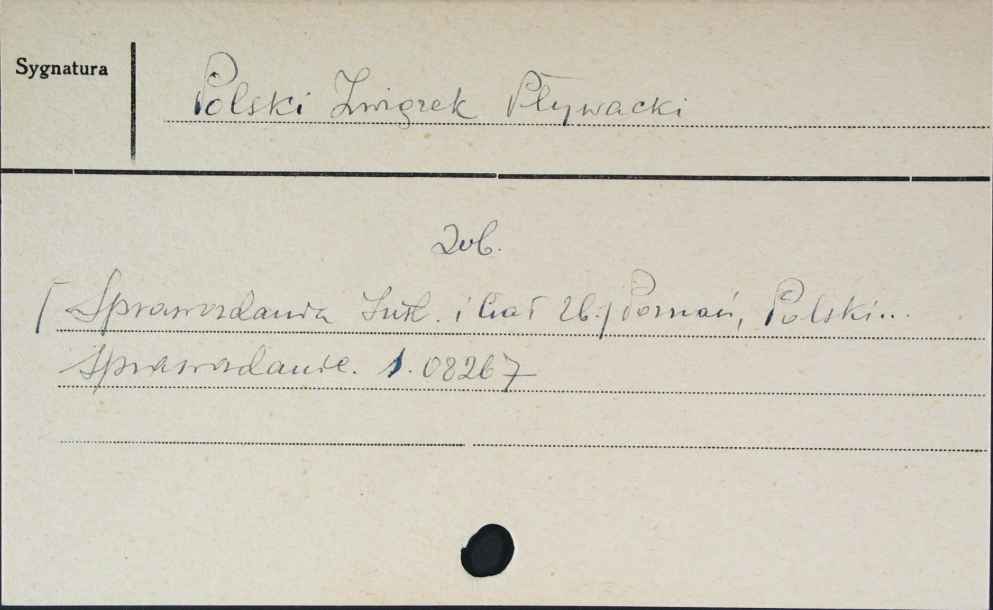 Sygnatura
Polski Związek Pływacki
Zob.
[Sprawozdania Inst. i Ciał Zb.] Poznań, Polski...
Sprawozdanie. s. 08267